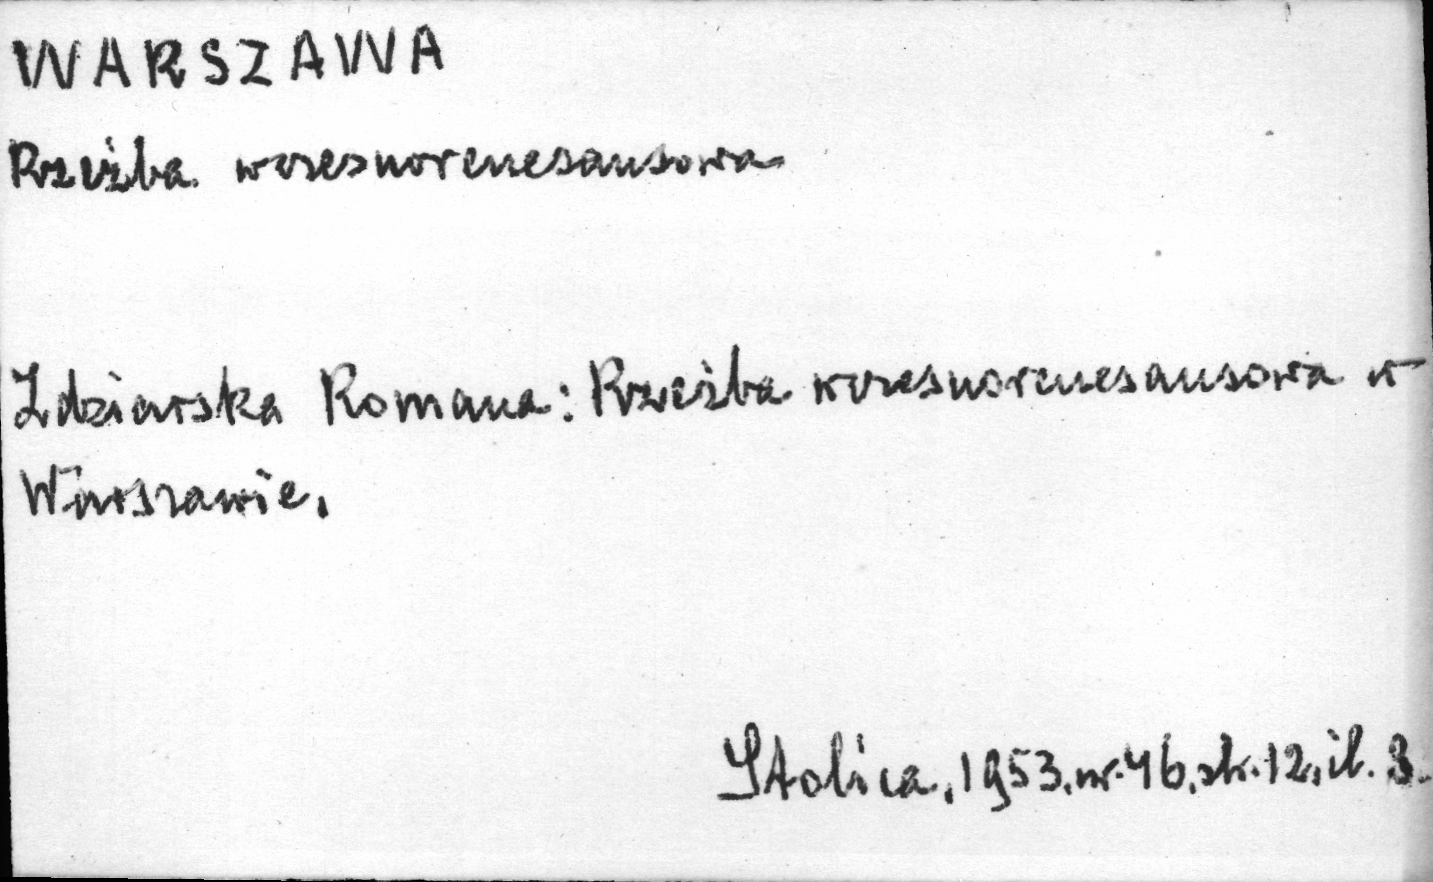 WARSZAWA
Rzeźba wczesnorenesansowa
Zdziarska Romana: Rzeźba wczesnorenesansowa w
Warszawie.
Stolica, 1953, nr. 46, str. 12, il. 3.